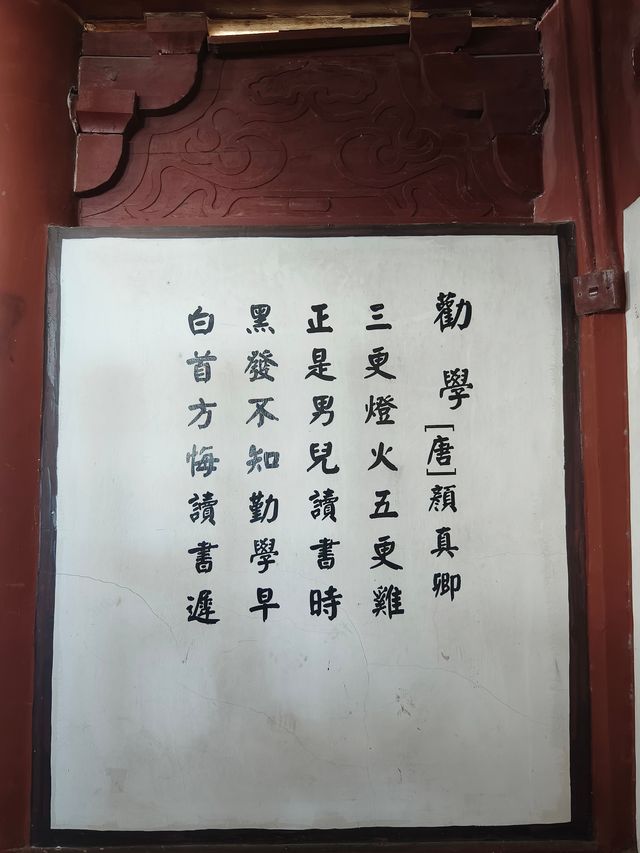 勸學
[唐]顏真卿
三更燈火五更雞
正是男兒讀書時
黑發不知勤學早
白首方悔讀書遲